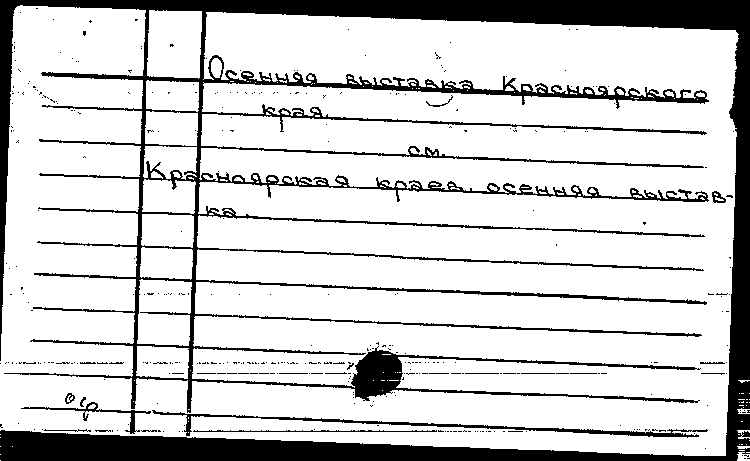 Осенняя выставка Красноярского
края.
см.
Красноярская краев. осенняя выстав-
ка.